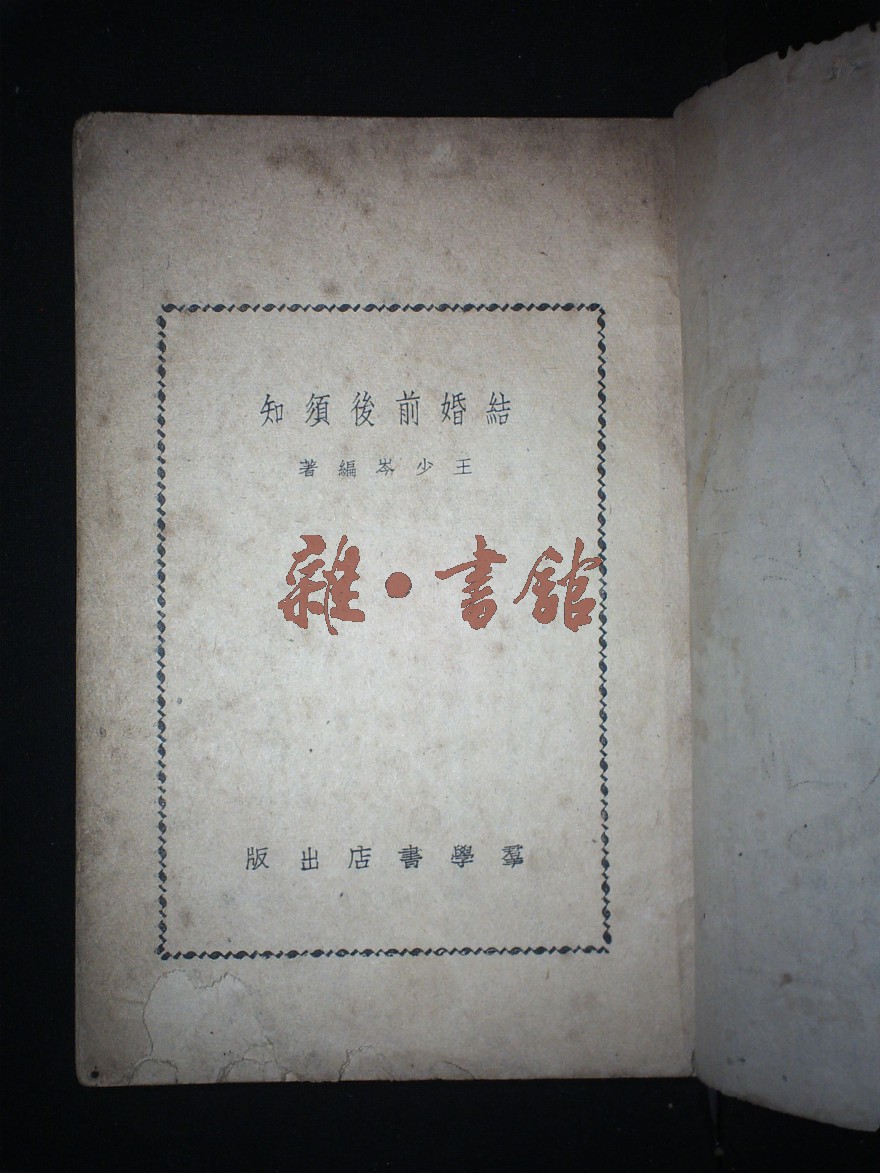 結婚前後須知
王少岑編著
雜·書舘
羣學書店出版